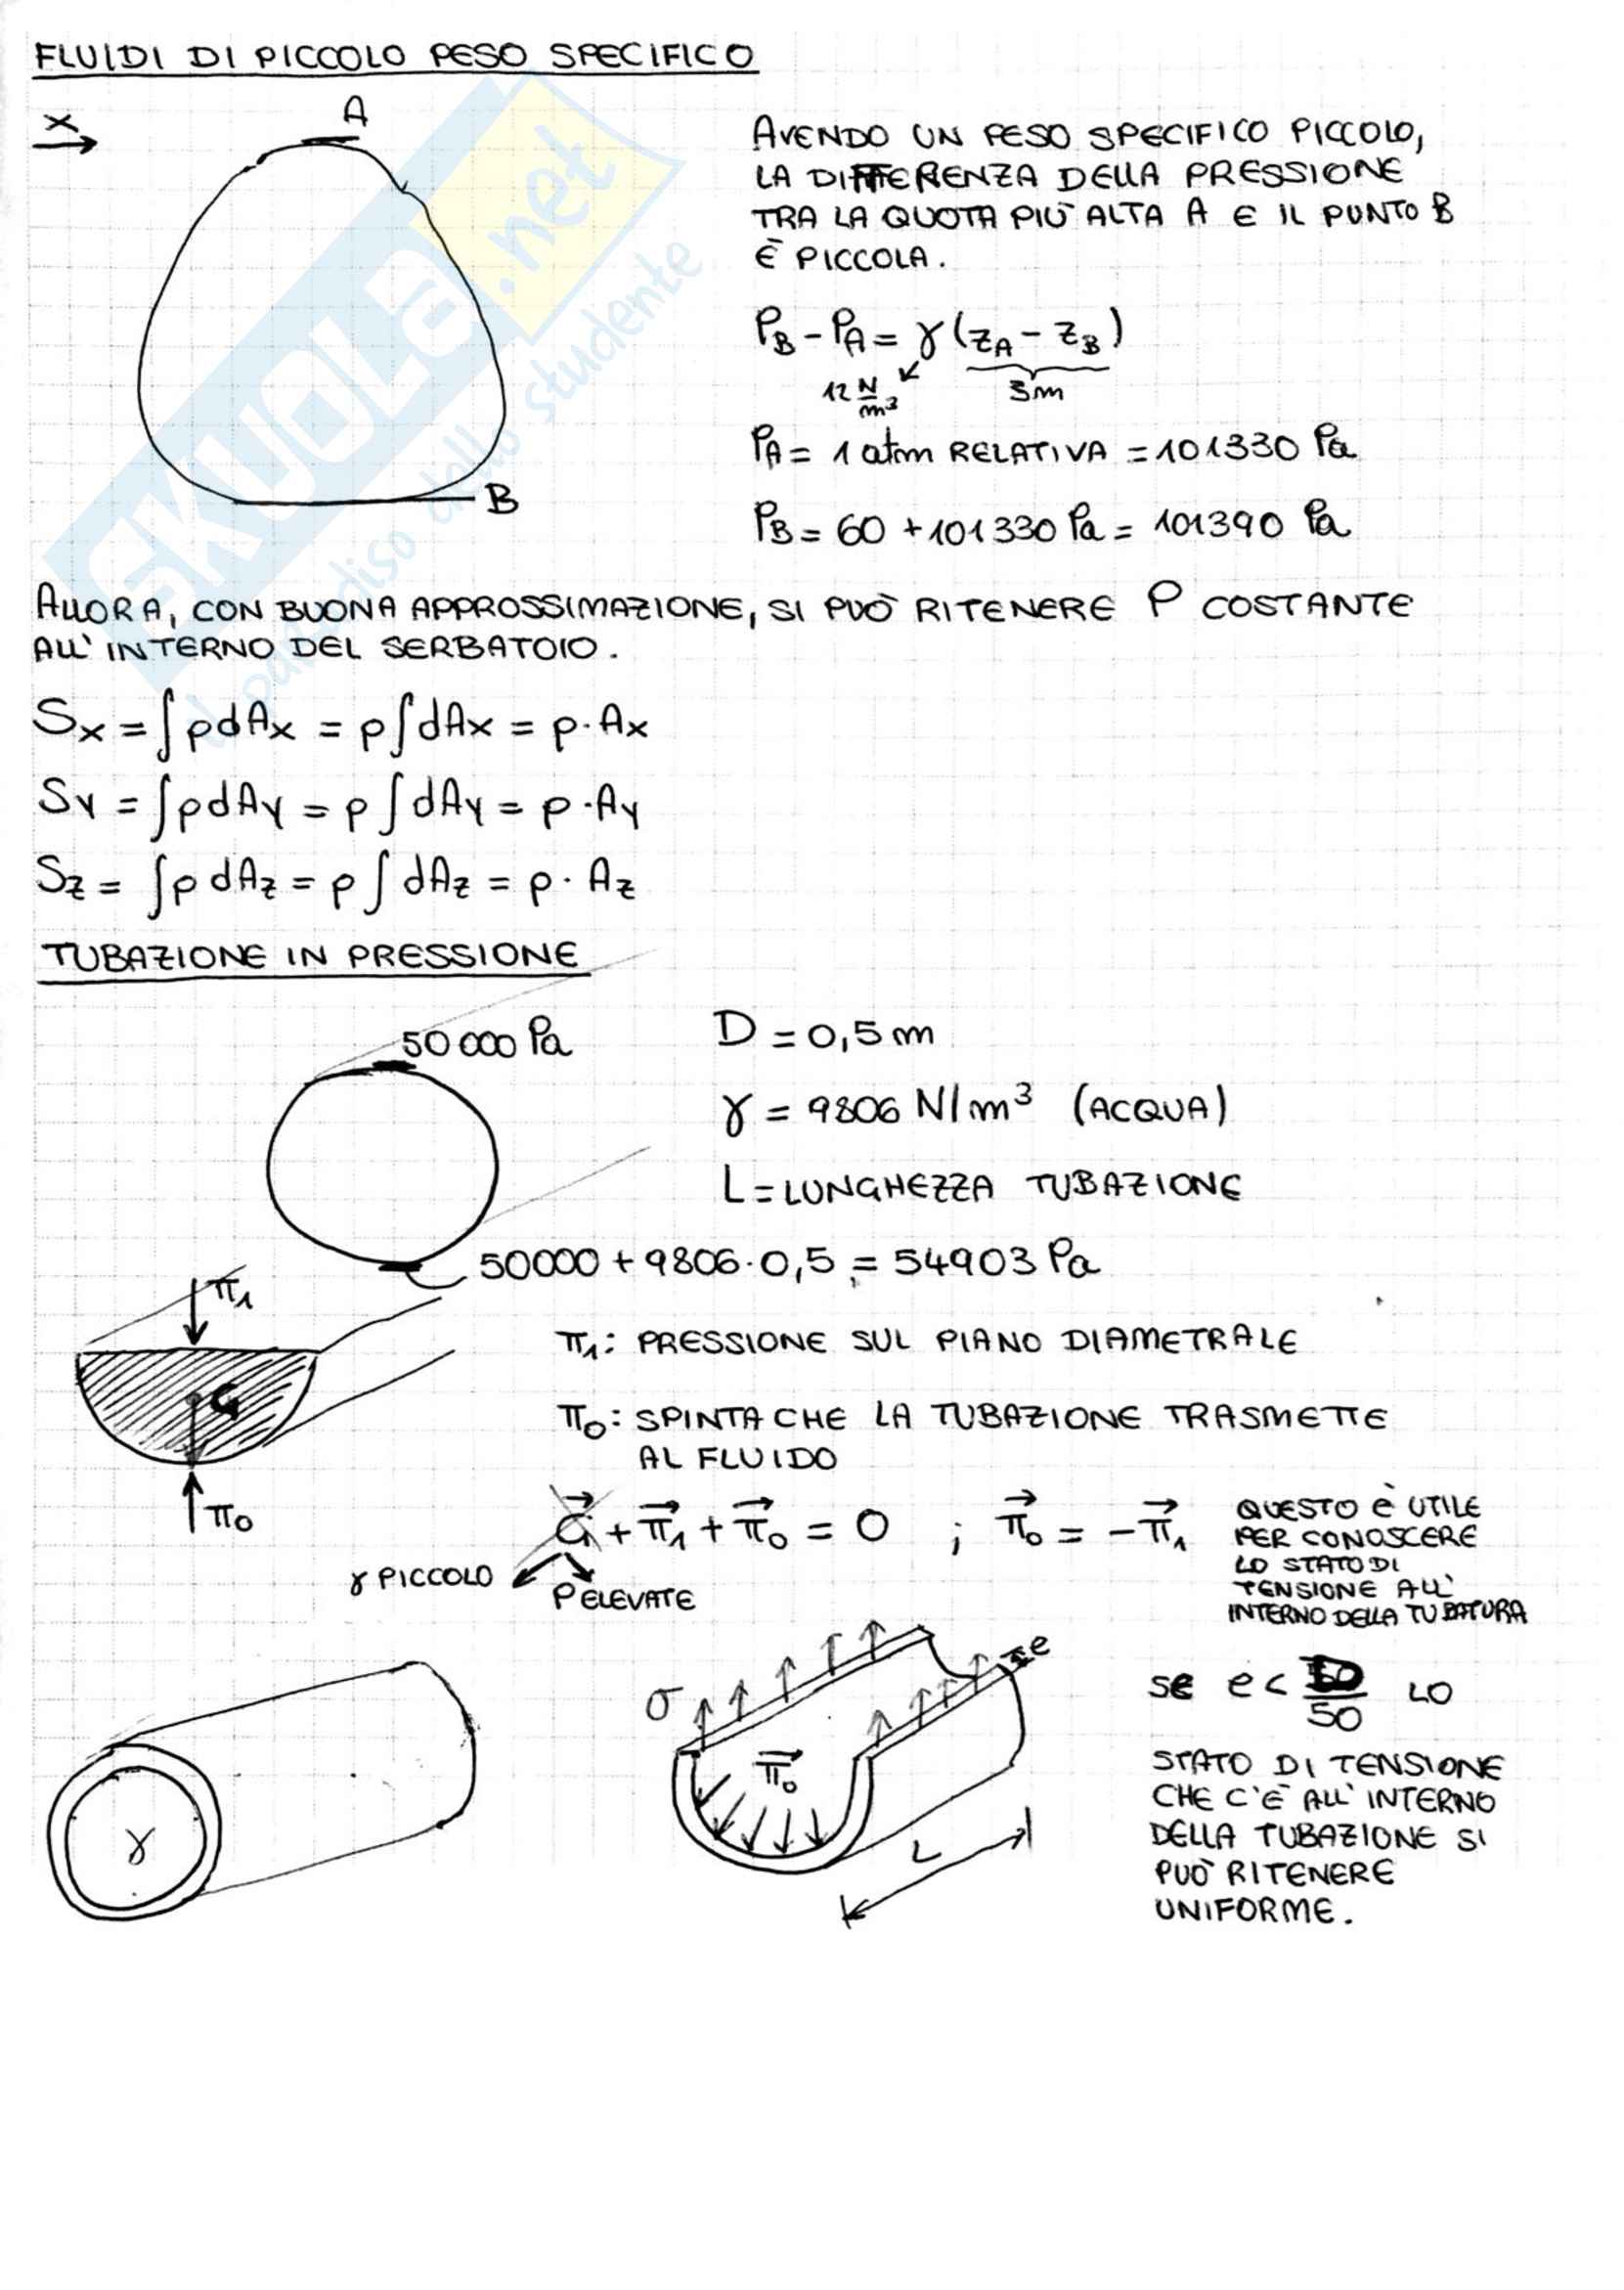 FLUIDI DI PICCOLO PESO SPECIFICO
x
A
AVENDO UN PESO SPECIFICO PICCOLO,
LA DIFFERENZA DELLA PRESSIONE
TRA LA QUOTA PIÙ ALTA A E IL PUNTO B
È PICCOLA.
P_B - P_A = γ (z_A - z_B)
12 N/m³
5m
P_A = 1 atm RELATIVA = 101330 Pa
B
P_B = 60 + 101330 Pa = 101390 Pa
ALLORA, CON BUONA APPROSSIMAZIONE, SI PUÒ RITENERE P COSTANTE
ALL'INTERNO DEL SERBATOIO.
S_x = ∫ p dA_x = p ∫ dA_x = p · A_x
S_y = ∫ p dA_y = p ∫ dA_y = p · A_y
S_z = ∫ p dA_z = p ∫ dA_z = p · A_z
TUBAZIONE IN PRESSIONE
50 000 Pa
D = 0,5 m
γ = 9806 N/m³ (ACQUA)
L = LUNGHEZZA TUBAZIONE
50000 + 9806 · 0,5 = 54903 Pa
π₁
π₁: PRESSIONE SUL PIANO DIAMETRALE
G
π₀: SPINTA CHE LA TUBAZIONE TRASMETTE
AL FLUIDO
π₀
G⃗ + π⃗₁ + π⃗₀ = 0 ; π⃗₀ = - π⃗₁
QUESTO È UTILE
PER CONOSCERE
LO STATO DI
TENSIONE ALL'
INTERNO DELLA TUBATURA
γ PICCOLO
P ELEVATE
σ
e
π⃗₀
L
γ
SE e < D/50 LO
STATO DI TENSIONE
CHE C'È ALL'INTERNO
DELLA TUBAZIONE SI
PUÒ RITENERE
UNIFORME.
SKUOLA.net
il paradiso dello studente